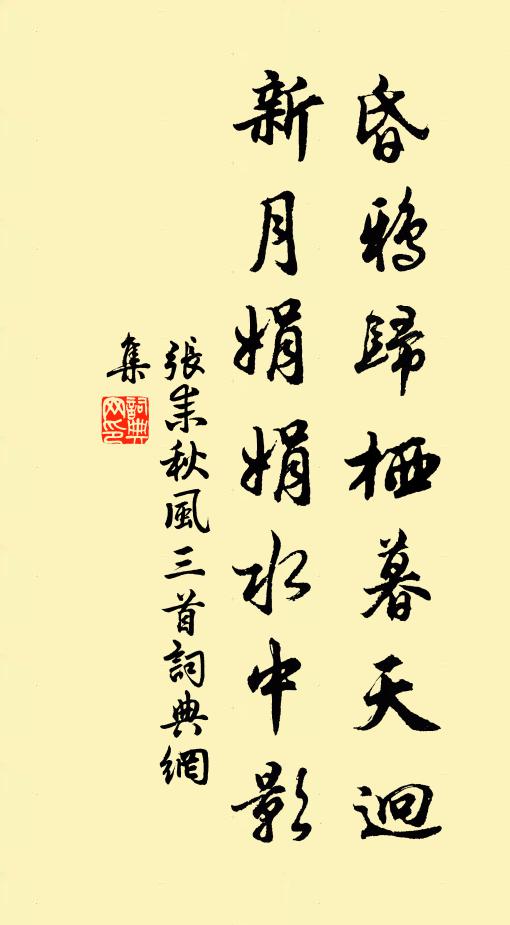 昏鴉歸栖暮天迥
新月娟娟水中影
張耒秋風三首詞典網
集
詞典
网印